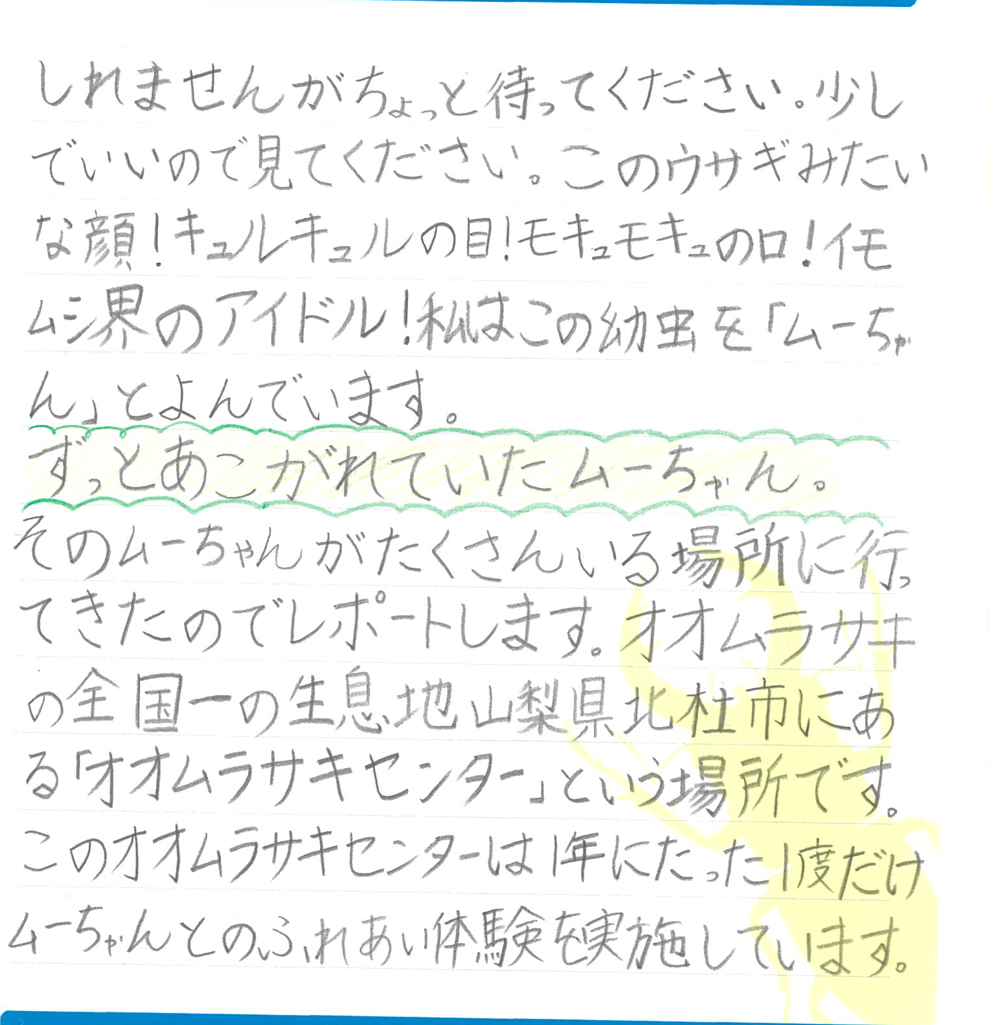 しれませんがちょっと待ってください。少し
でいいので見てください。このウサギみたい
な顔！キュルキュルの目！モキュモキュの口！イモ
ムシ界のアイドル！私はこの幼虫を「ムーちゃ
ん」とよんでいます。
ずっとあこがれていたムーちゃん。
そのムーちゃんがたくさんいる場所に行っ
てきたのでレポートします。オオムラサキ
の全国一の生息地山梨県北杜市にあ
る「オオムラサキセンター」という場所です。
このオオムラサキセンターは1年にたった1度だけ
ムーちゃんとのふれあい体験を実施しています。